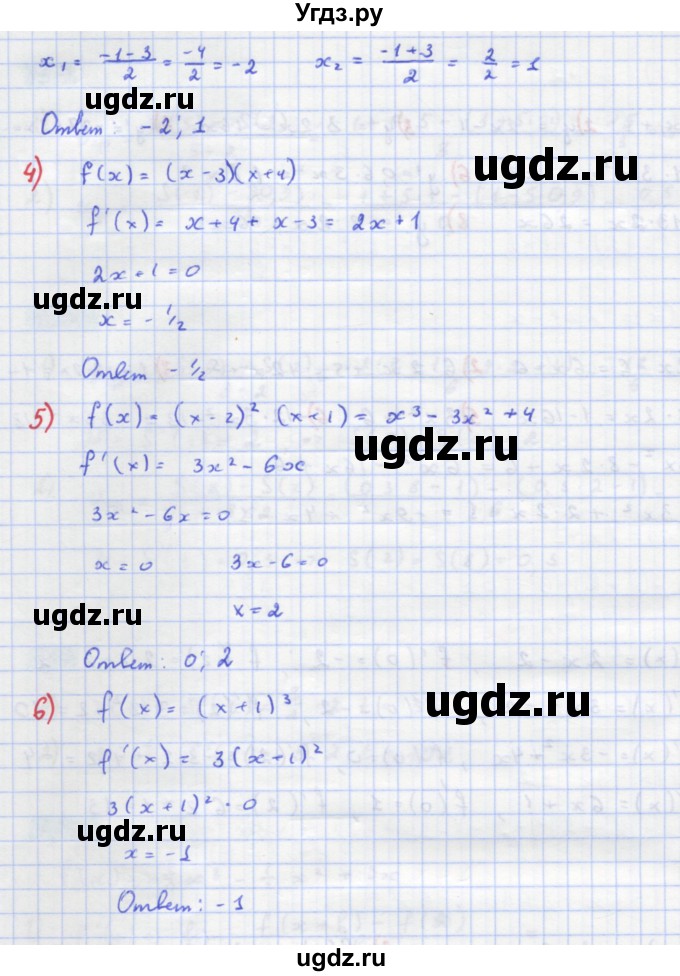 Угдз.ру
x₁ = (-1-3)/2 = -4/2 = -2     x₂ = (-1+3)/2 = 2/2 = 1
ugdz.ru
Ответ: -2; 1
ugdz.ru
4) f(x) = (x-3)(x+4)
f'(x) = x+4+x-3 = 2x+1
2x+1=0
ugdz.ru
x = -1/2
Ответ -1/2
ugdz.ru
5) f(x) = (x-2)² · (x+1) = x³ - 3x² + 4
f'(x) = 3x² - 6x
3x² - 6x = 0
x = 0     3x-6=0
ugdz.ru
x = 2
Ответ: 0; 2
6) f(x) = (x+1)³
ugdz.ru
f'(x) = 3(x+1)²
3(x+1)² · 0
ugdz.ru
x = -1
Ответ: -1
ugdz.ru